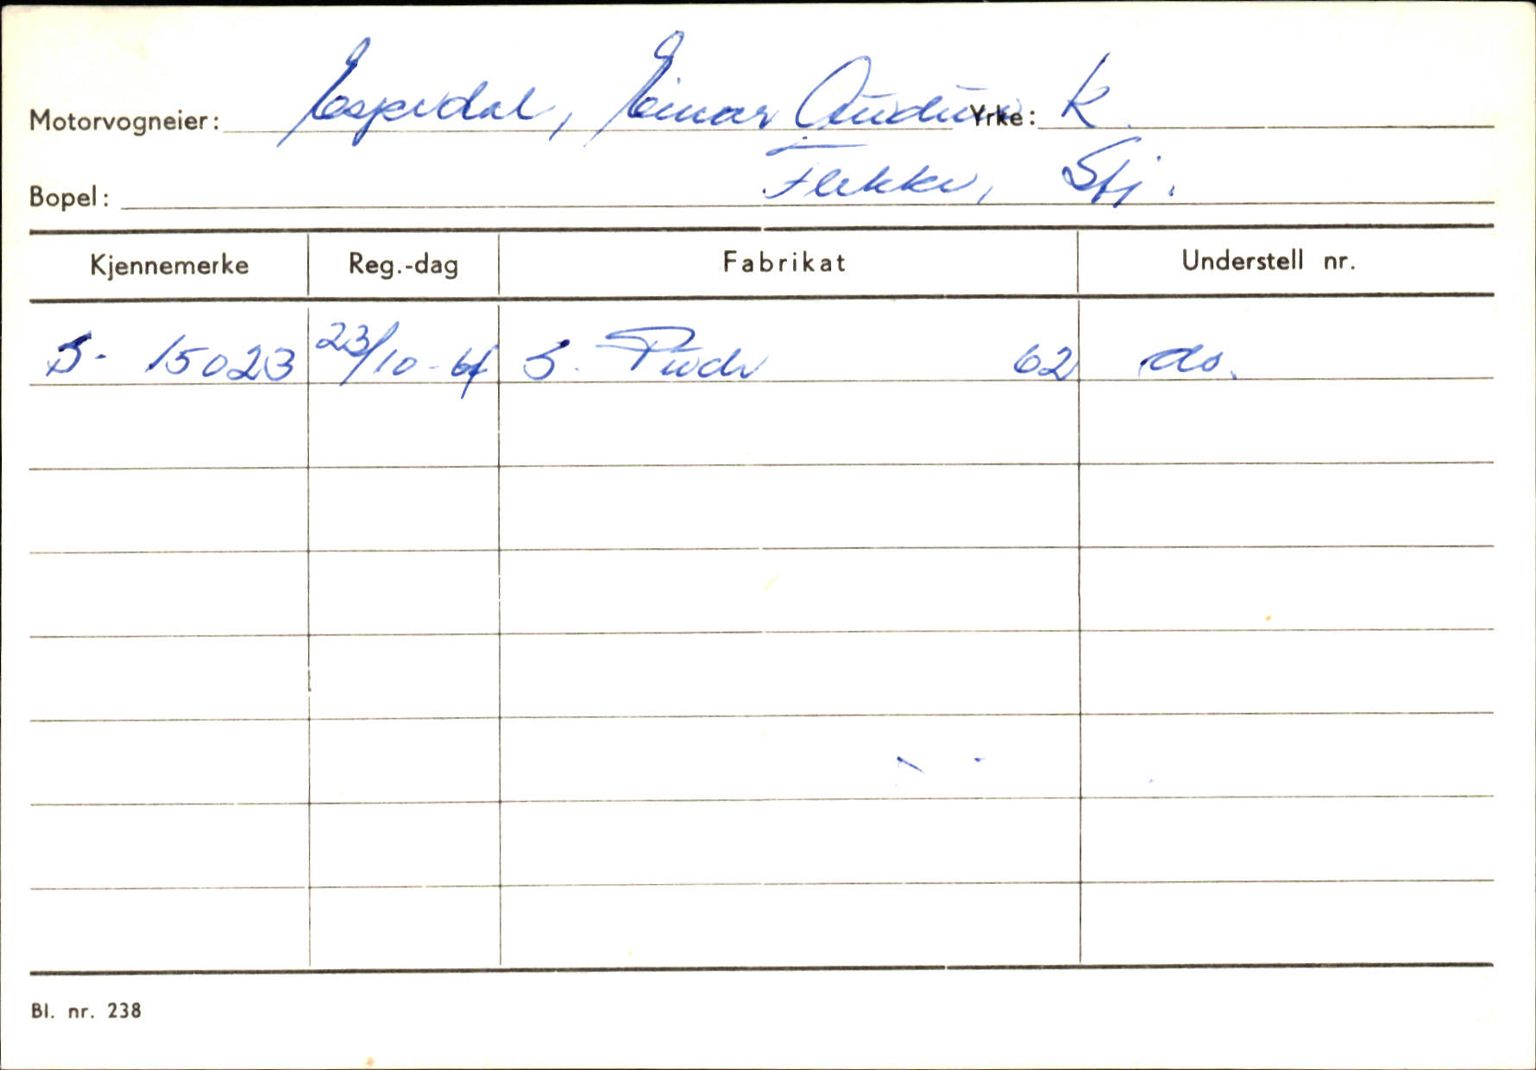 Motorvogneier: Espedal, Einar Audun Yrke: K.
Bopel: Flekke, Sfj.
Kjennemerke Reg.-dag Fabrikat Understell nr.
S- 15023 23/10-64 S. Puch 62 do.
Bl. nr. 238